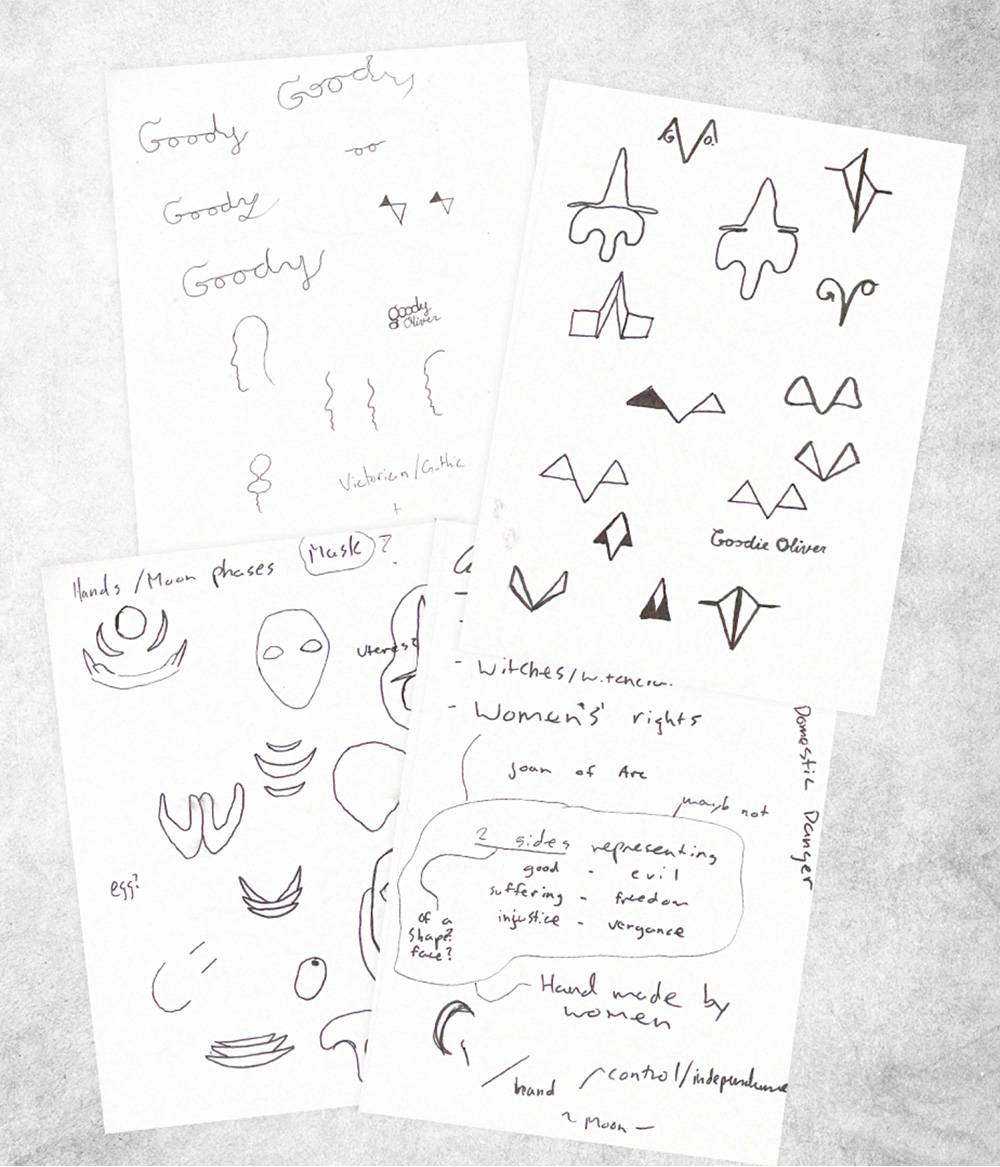 Goody
Goody
Goody
Goody
goody
& Oliver
Victorian/Gothic
+
G O.
G O
Goodie Oliver
Hands/Moon phases
Mask?
uteres?
egg?
- Witches/
- Women's' rights
Joan of Arc
mayb not
2 sides representing
good - evil
suffering - freedom
injustice - vergance
of a
shape?
face?
Hand made by
women
brand
control/independence
~ Moon -
Domestic Danger